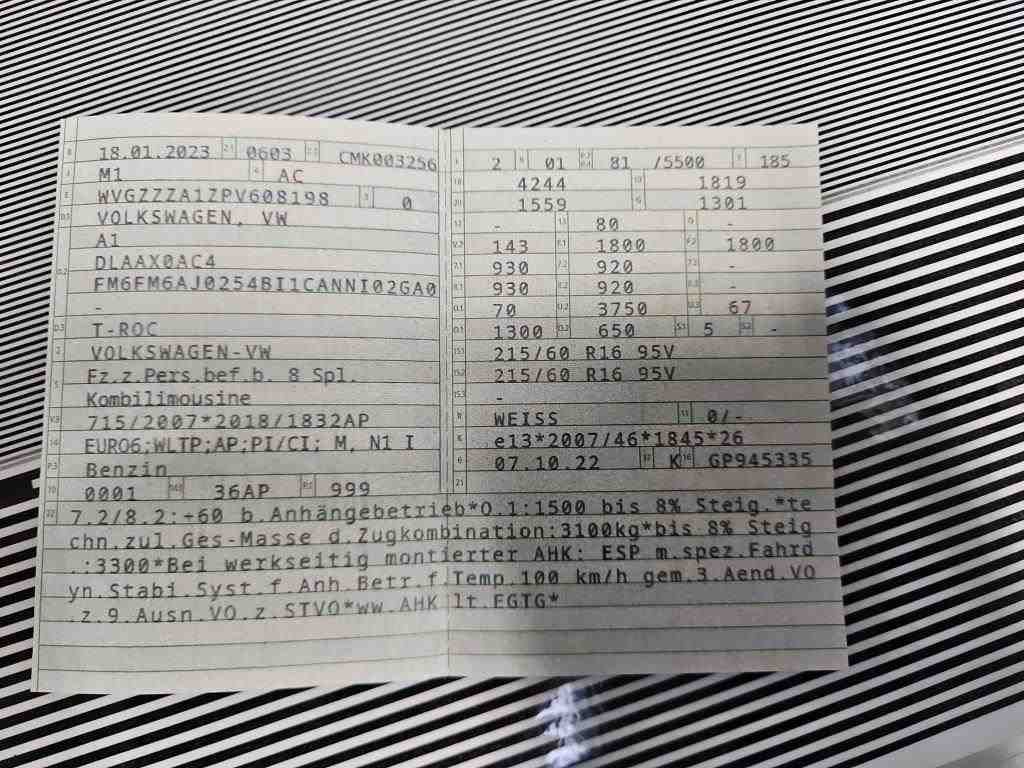 18.01.2023 0603 CMK003256
M1 AC
WVGZZZA1ZPV608198 0
VOLKSWAGEN, VW
A1
DLAAX0AC4
FM6FM6AJ0254BI1CANNI02GA0
-
T-ROC
VOLKSWAGEN-VW
Fz.z.Pers.bef.b. 8 Spl.
Kombilimousine
715/2007*2018/1832AP
EURO6;WLTP;AP;PI/CI; M, N1 I
Benzin
0001 36AP 999
2 01 81 /5500 185
4244 1819
1559 1301
- 80 -
143 1800 1800
930 920 -
930 920 -
70 3750 67
1300 650 5 -
215/60 R16 95V
215/60 R16 95V
-
WEISS 0/-
e13*2007/46*1845*26
07.10.22 K GP945335
7.2/8.2:+60 b.Anhängebetrieb*O.1:1500 bis 8% Steig.*te
chn.zul.Ges-Masse d.Zugkombination:3100kg*bis 8% Steig
.:3300*Bei werkseitig montierter AHK: ESP m.spez.Fahrd
yn.Stabi.Syst.f.Anh.Betr.f.Temp.100 km/h gem.3.Aend.VO
.z.9.Ausn.VO.z.STVO*ww.AHK lt.EGTG*